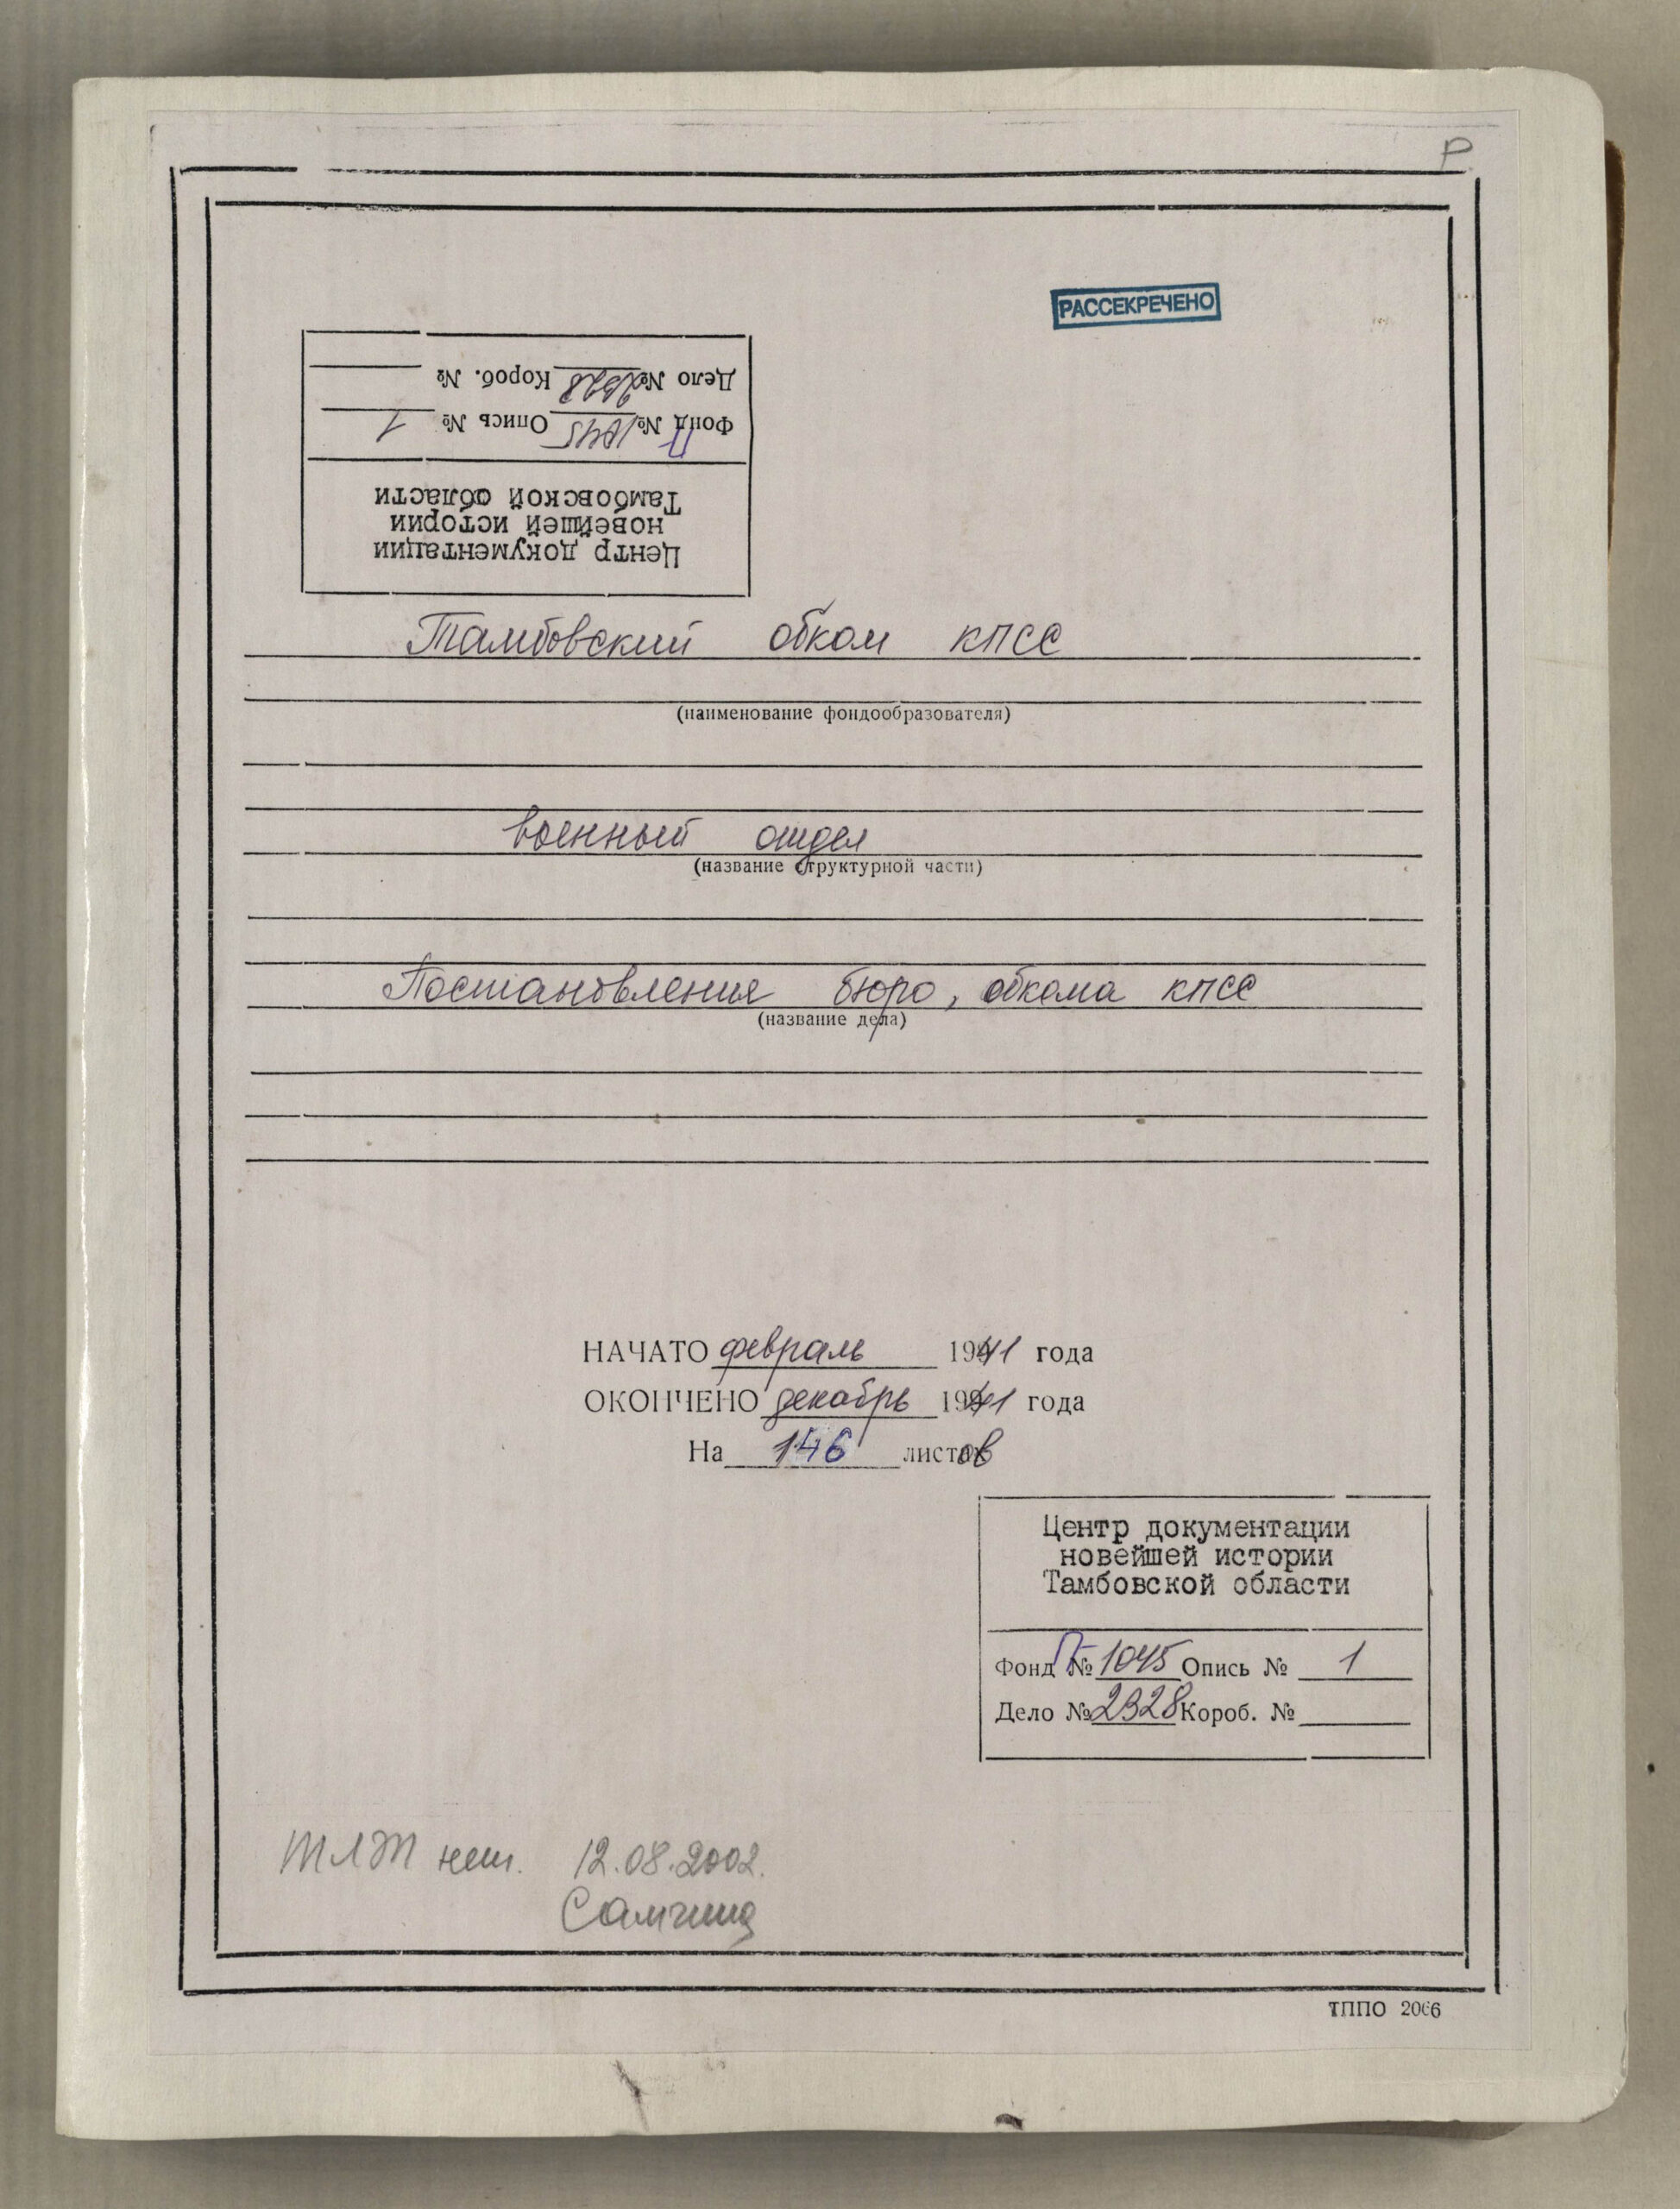 Р
РАССЕКРЕЧЕНО
Центр документации
новейшей истории
Тамбовской области
Фонд П № 1045 Опись № 1
Дело № 2328 Короб. №
Тамбовский обком КПСС
(наименование фондообразователя)
военный отдел
(название структурной части)
Постановления бюро, обкома КПСС
(название дела)
НАЧАТО февраль 1941 года
ОКОНЧЕНО декабрь 1941 года
На 146 листов
Центр документации
новейшей истории
Тамбовской области
Фонд П № 1045 Опись № 1
Дело № 2328 Короб. №
нет. 12.08.2002.
ТППО 2066